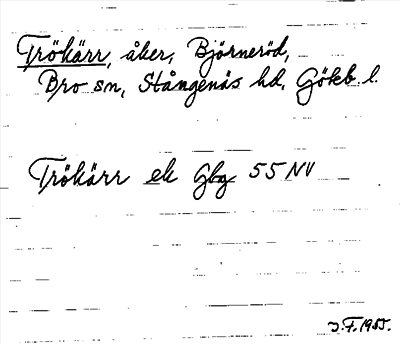 Trökärr, åker, Björneröd,
Bro sn, Stångenäs hd, Gökb l.
Trökärr ek Gbg 55 NV
J.F. 1955.